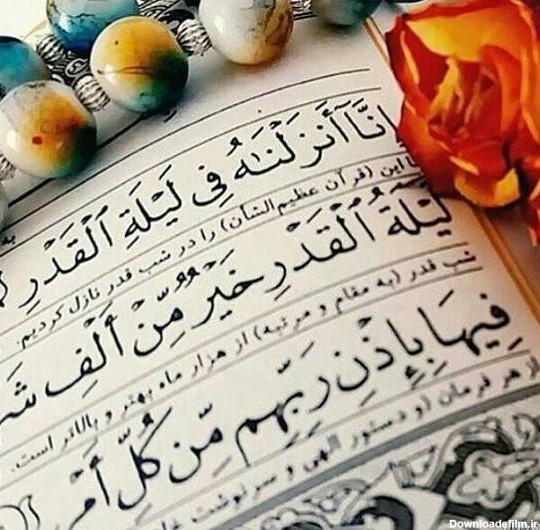 إِنَّآ أَنزَلْنَـٰهُ فِى لَيْلَةِ ٱلْقَدْرِ
ما این (قرآن عظیم الشان) را در شب قدر نازل کردیم.
لَيْلَةُ ٱلْقَدْرِ خَيْرٌ مِّنْ أَلْفِ
شب قدر (به مقام و مرتبه) از هزار ماه بهتر و بالاتر است.
فِيهَا بِإِذْنِ رَبِّهِم مِّن كُلِّ أَمْرٍ
از هر فرمان (و دستور الهی و سرنوشت
Downloadefilm.ir